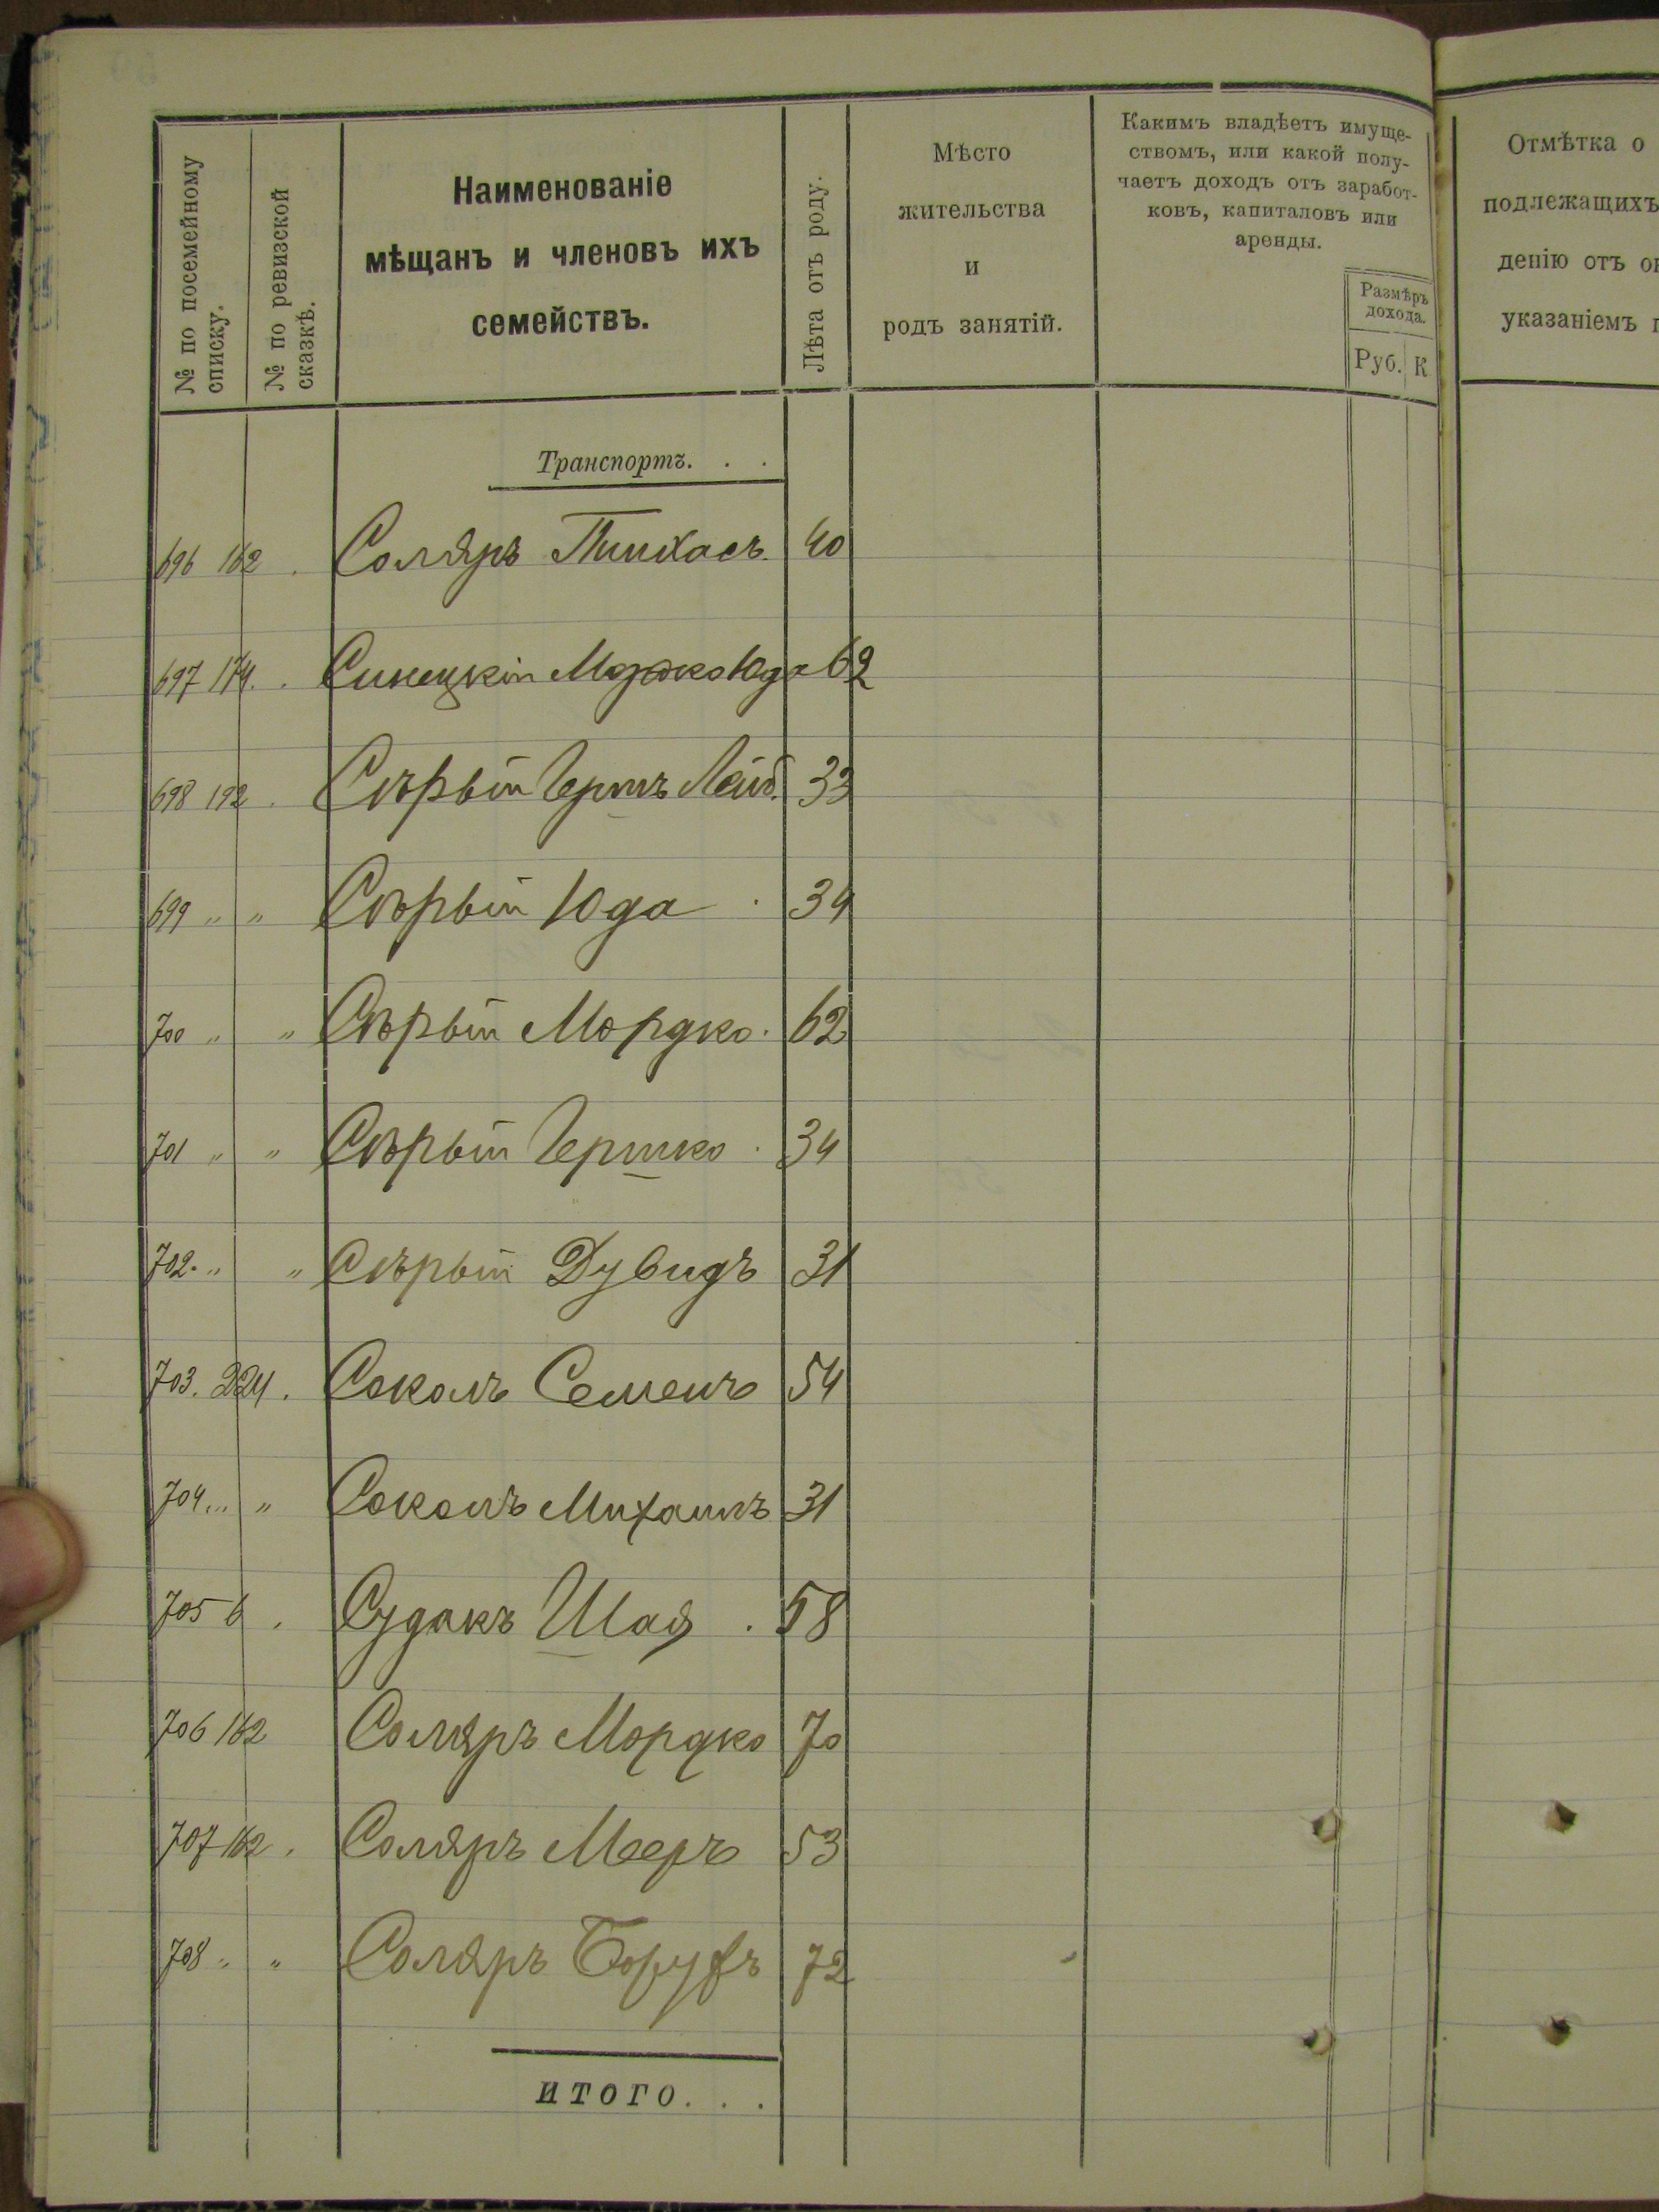 № по посемейному
списку.
№ по ревизской
сказкѣ.
Наименованіе
мѣщанъ и членовъ ихъ
семействъ.
Лѣта отъ роду.
Мѣсто
жительства
и
родъ занятій.
Какимъ владѣетъ имуще-
ствомъ, или какой полу-
чаетъ доходъ отъ заработ-
ковъ, капиталовъ или
аренды.
Размѣръ
дохода.
Руб. К
Отмѣтка о
подлежащихъ
денію отъ
указаніемъ
Транспортъ. . .
696 162 . Соляръ Пинхасъ 40
697 174. . Синецкій Мордко Юда 62
698 192 . Сѣрый Гершъ Лейб. 33
699 " " Сѣрый Юда . 34
700 " " Сѣрый Мордко . 62
701 " " Сѣрый Гершко . 34
702. " " Сѣрый Дувидъ 31
703. 224. Соколъ Семенъ 54
704 " " Соколъ Михаилъ 31
705 6 . Судакъ Шая . 58
706 162 Соляръ Мордко 70
707 162 . Соляръ Мееръ 53
708 " " Соляръ Борухъ 72
ИТОГО. . .